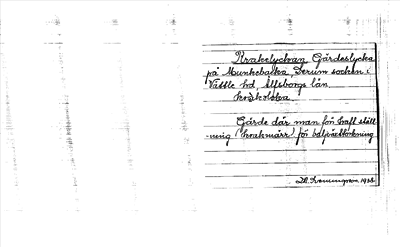 Krakelyckan Gärdeslycka
på Munkebacka, Lerum socken i
Vättle hd, Älfsborgs län.
Krakelöka
Gärde där man för haft ställ-
ning (krakmärr) för baljväxttorkning
D. Henningson 1933